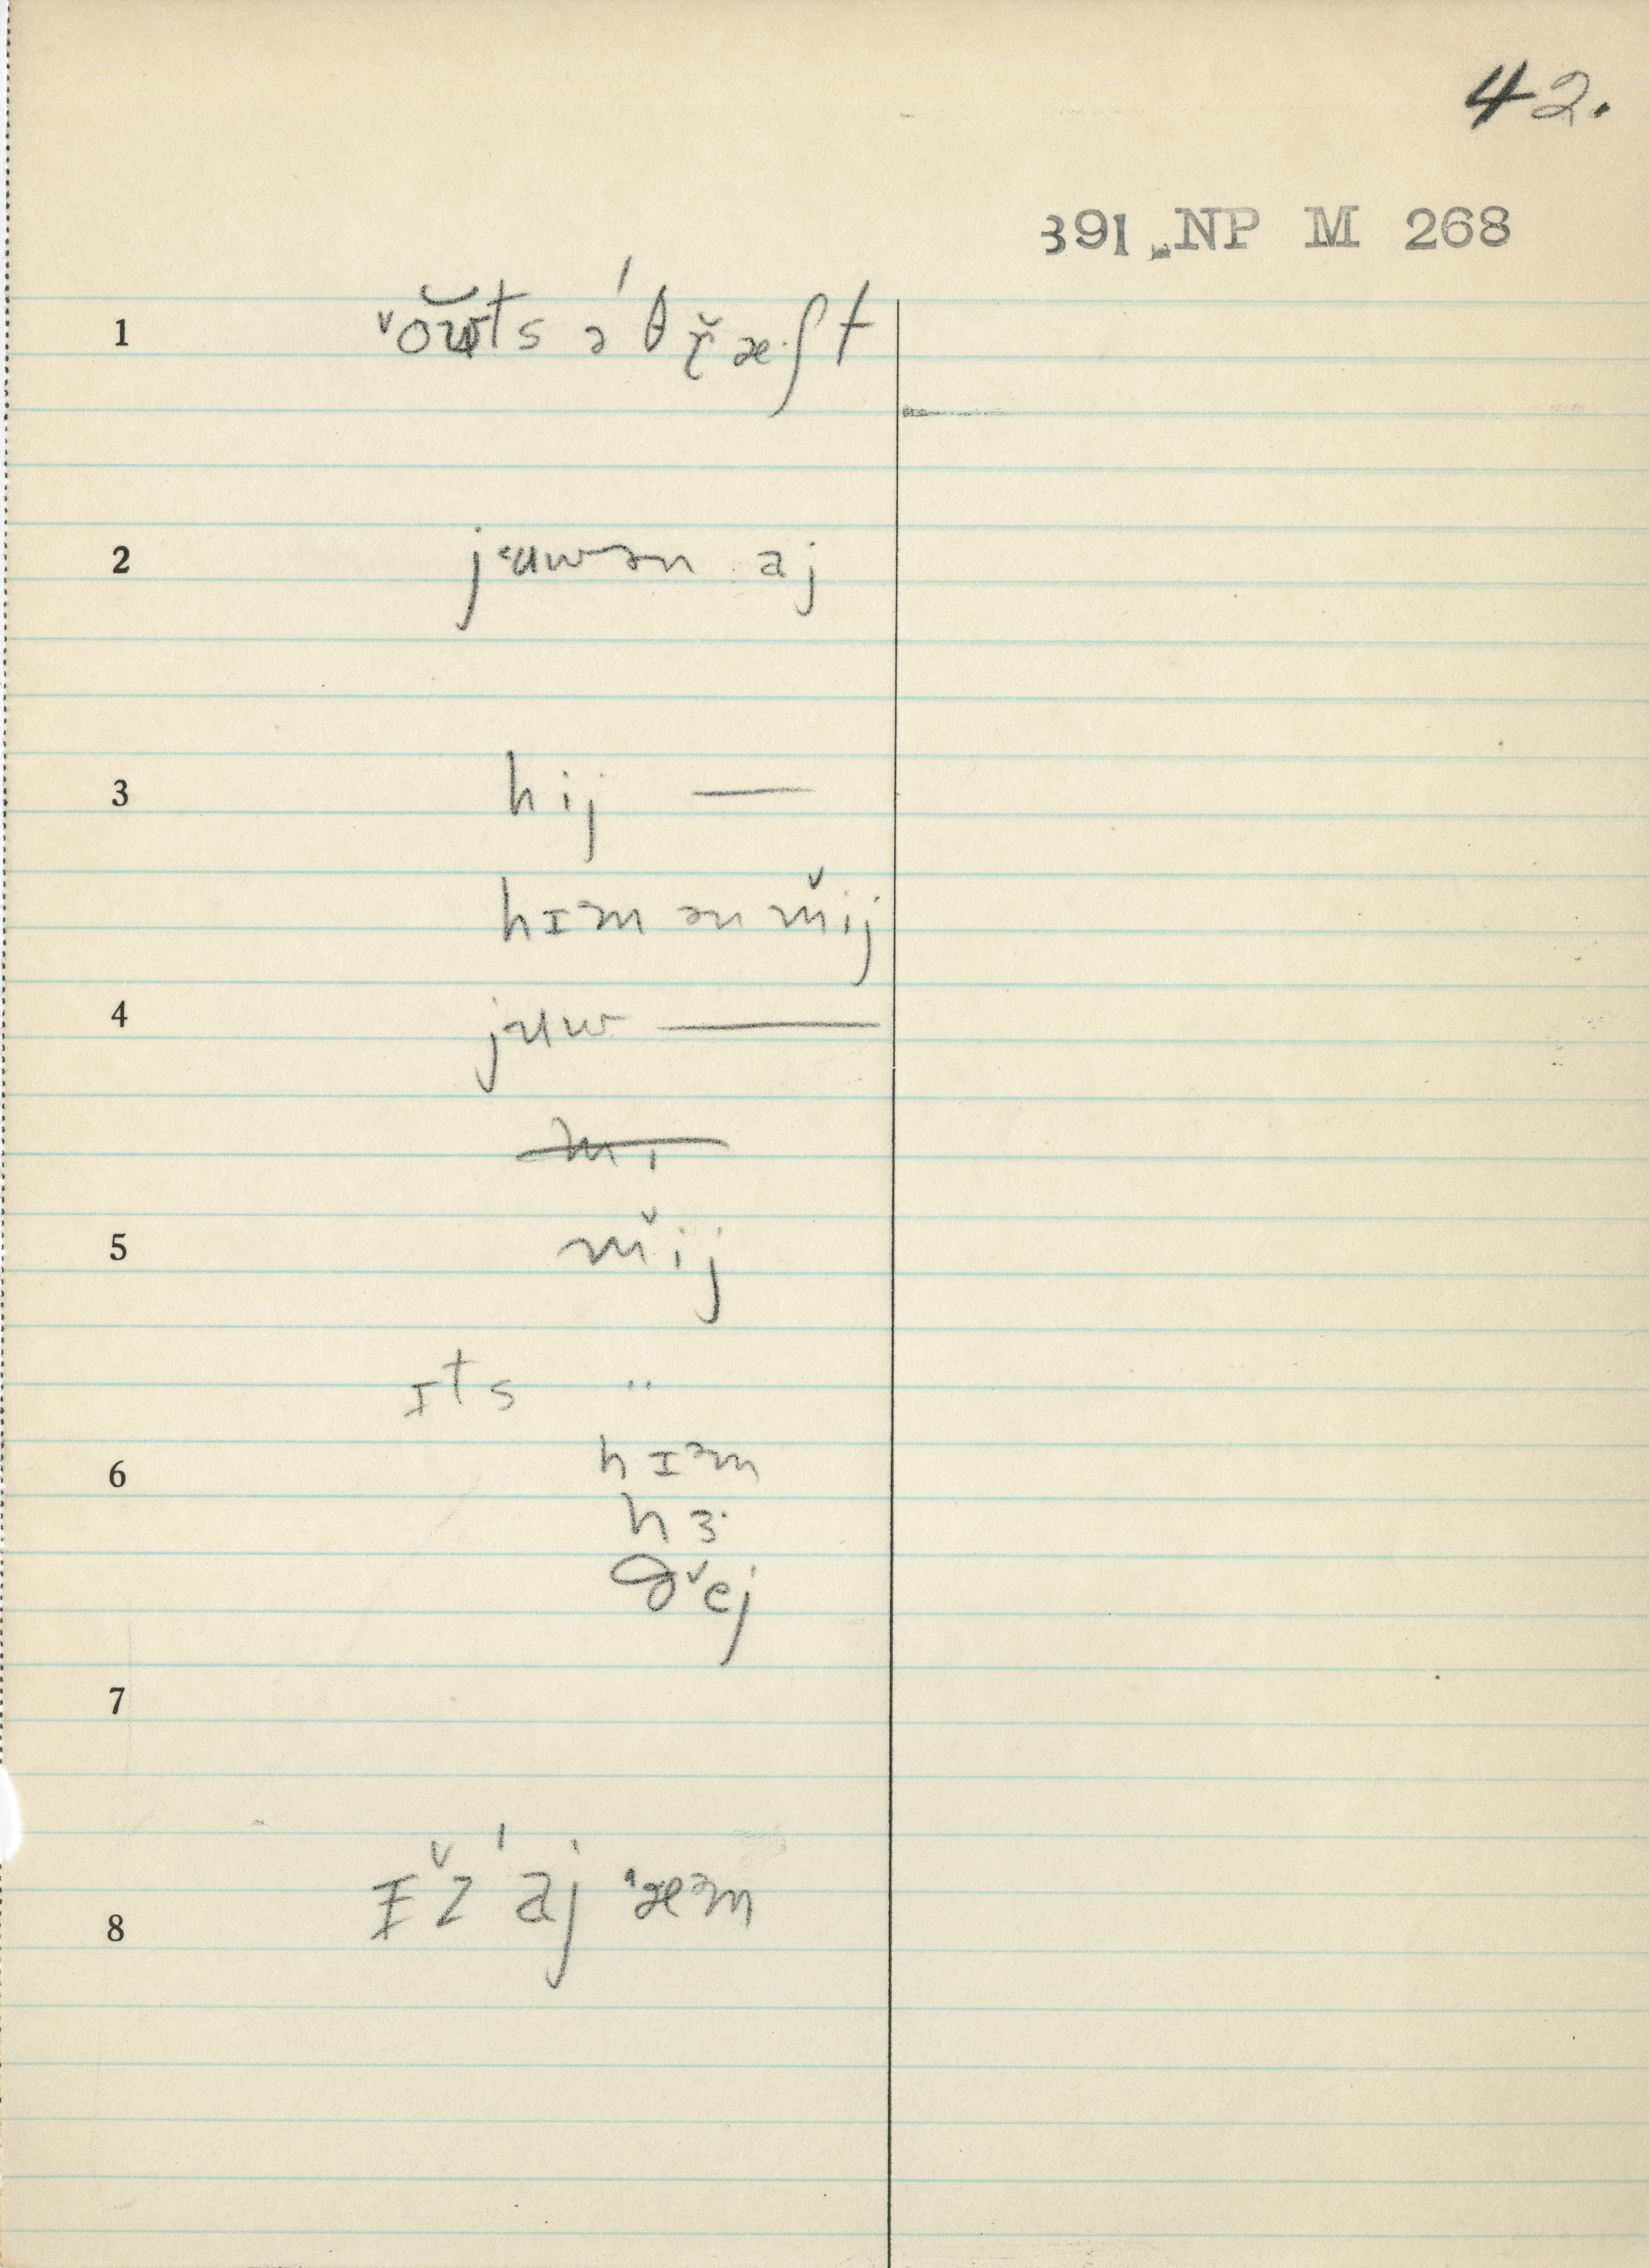 42.
391 NP M 268
1 ˇoŭts ə ˈθɹ̌æʃt
2 jʉwən aj
3 hij —
hɪəm ən m̌ij
4 juw —
mi
5 m̌ij
ɪts "
6 hɪəm
hɜ·
ðˇej
7
8 ɪˇz ˈaj ˈæəm